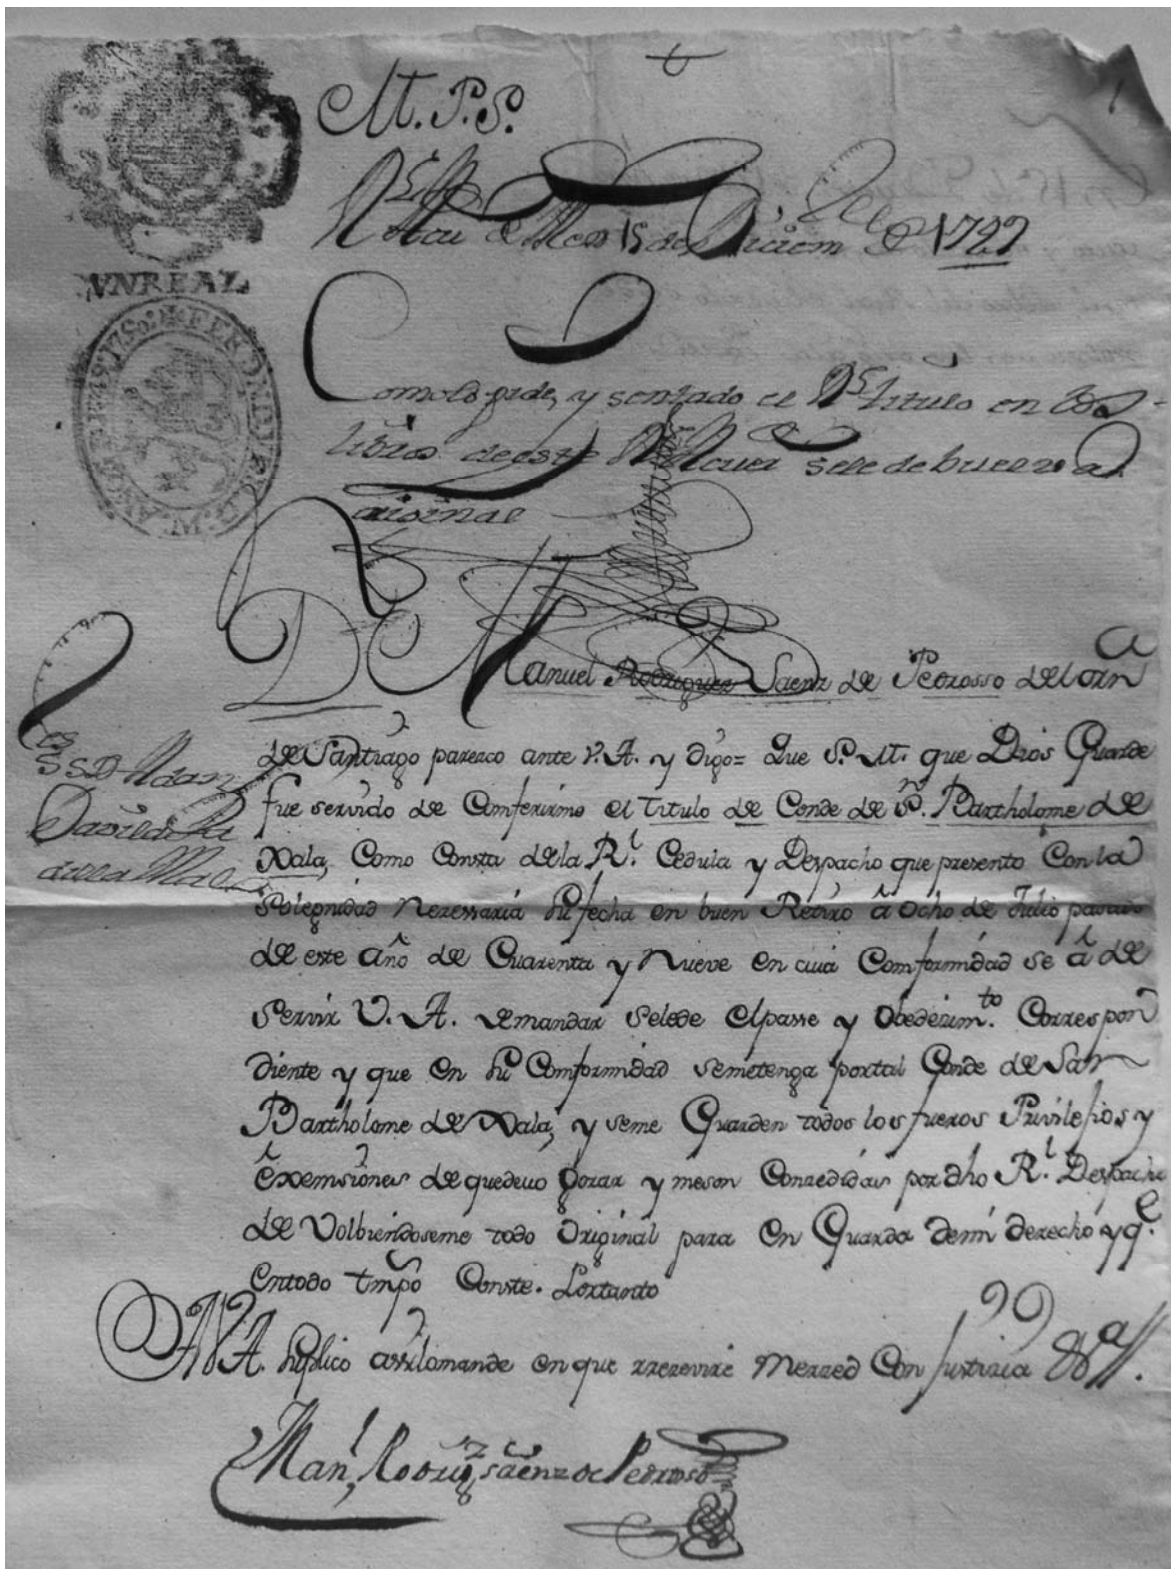 M.P.S.
de Mex.co 15 de Diciem.e de 1749
VNREAL
Como lo pide, y sentado el R.s titulo en los
libros de este sele debuelva
original
D.n Manuel Rodriguez Saenz de Pedrosso del orn
de Santiago paresco ante V.A. y digo= Que S.M. que Dios Guarde
fue servido de Comferirme el titulo de Conde de S.n Bartholome de
Xala, Como Consta dela R.l Cedula y Despacho que presento Con la
Solegnidad Nezessaria Su fecha en buen Retiro â ocho de Julio passado
de este año de Quarenta y Nueve en cuia Comformidad se â de
Servir V.A. demandar Selede elpasse y Obedecim.to Correspon
diente y que en Su Comformidad semetenga portal Conde de San
Bartholome de Xala, y seme Guarden todos los fueros Privilejios y
êxempsiones de quedevo gozar y meson Conzedidas por dho R.l Despacho
de Volbiendoseme todo Original para en Guarda demi derecho y q.e
entodo tmpô Conste. Portanto
A V.A. Suplico assilomande en que rrezevire Merzed Con Justizia &a.
Man.l Rodrig.z saenz de Pedroso